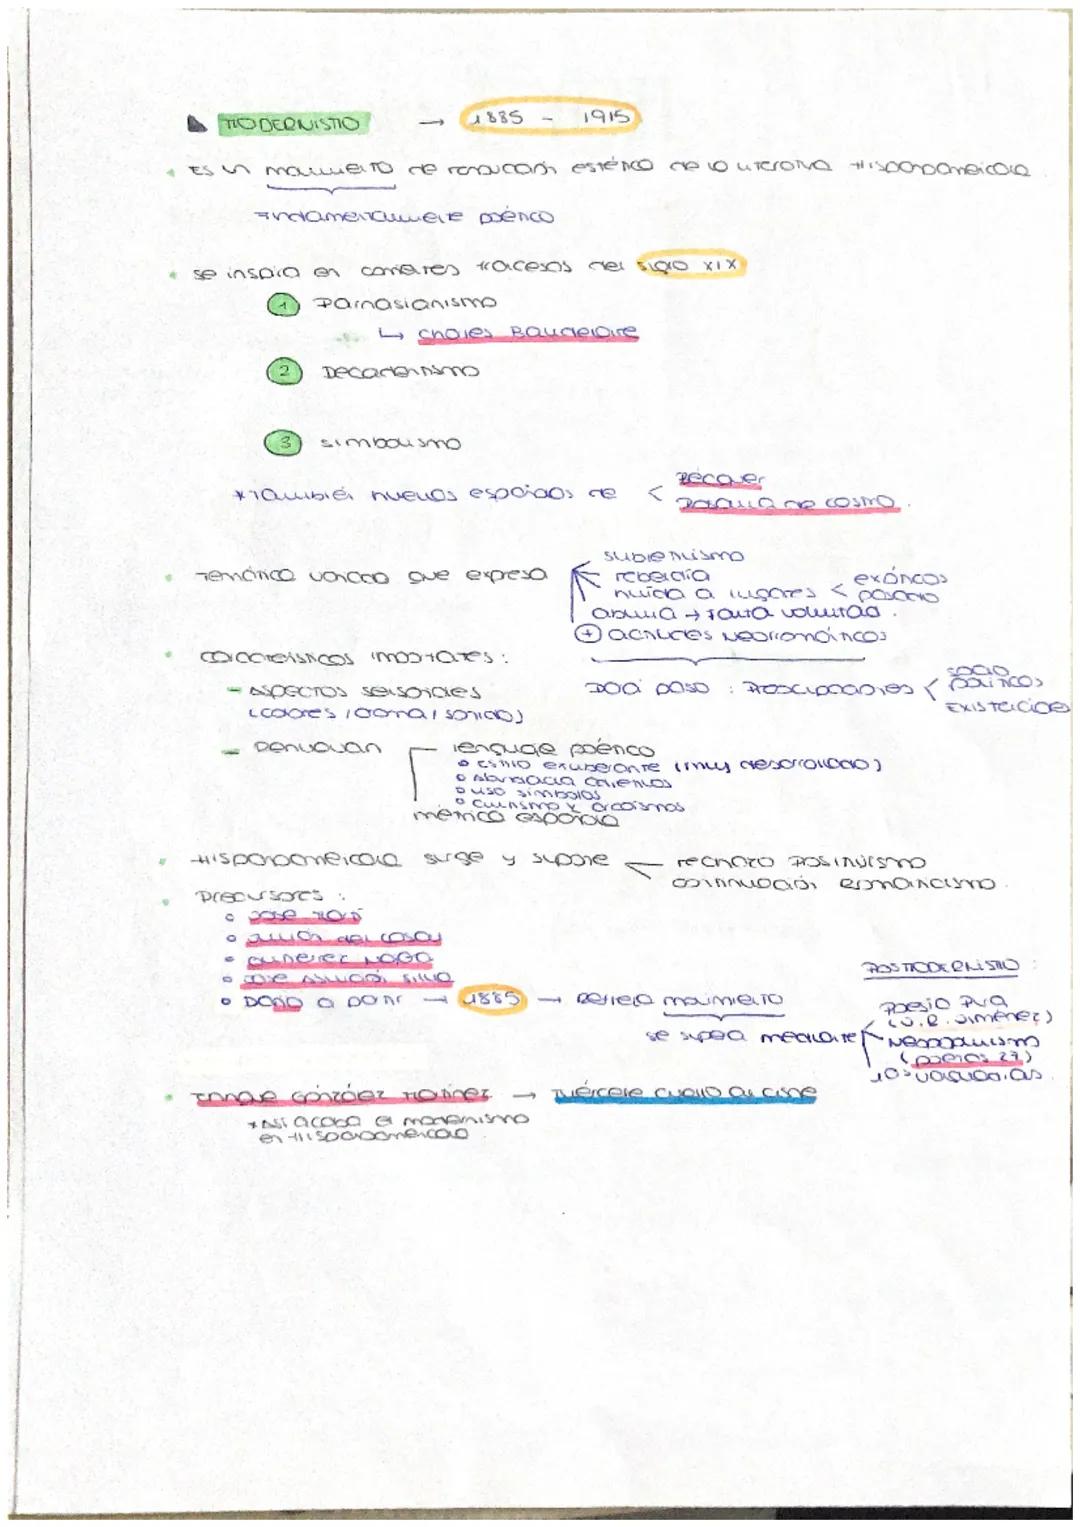 MODERNISMO → 1885 - 1915
• Es un movimiento de renovación estético de la literatura Hispanoamericana
Fundamentalmente poético
• Se inspira en corrientes franceses del siglo XIX
1 Parnasianismo
↳ Charles Baudelaire
2 Decadentismo
3 Simbolismo
*También nuevos españoles de < Bécquer
Rosalía de Castro.
• Temática variada que expresa
subjetivismo
rebeldía
huida a lugares < exóticos
pasado
abulia → falta voluntad.
+ actitudes Neorrománticos
• Características importantes:
Dará paso: Preocupaciones < socio
políticos
existenciales
- Aspectos sensoriales
(colores / aroma / sonido)
- Renuevan
lenguaje poético
◦ Estilo exuberante (muy desarrollado)
◦ Abundancia
◦ uso símbolos
◦ Cultismo y arcaísmos
métrica española
• Hispanoamericana surge y supone
rechazo Positivismo
continuación romanticismo.
• Precursores:
◦ José Martí
◦ Julián del Casal
◦ Gutiérrez Nájera
◦ José Asunción Silva
◦ Darío a partir → 1885 → movimiento
se supera mediante
POSTMODERNISMO:
Poesía Pura
(J.R. Jiménez)
Neopopulismo
(poetas 27)
las vanguardias.
• Enrique González Martínez → Tuércele cuello al cisne
*Así acaba el modernismo
en Hispanoamericana